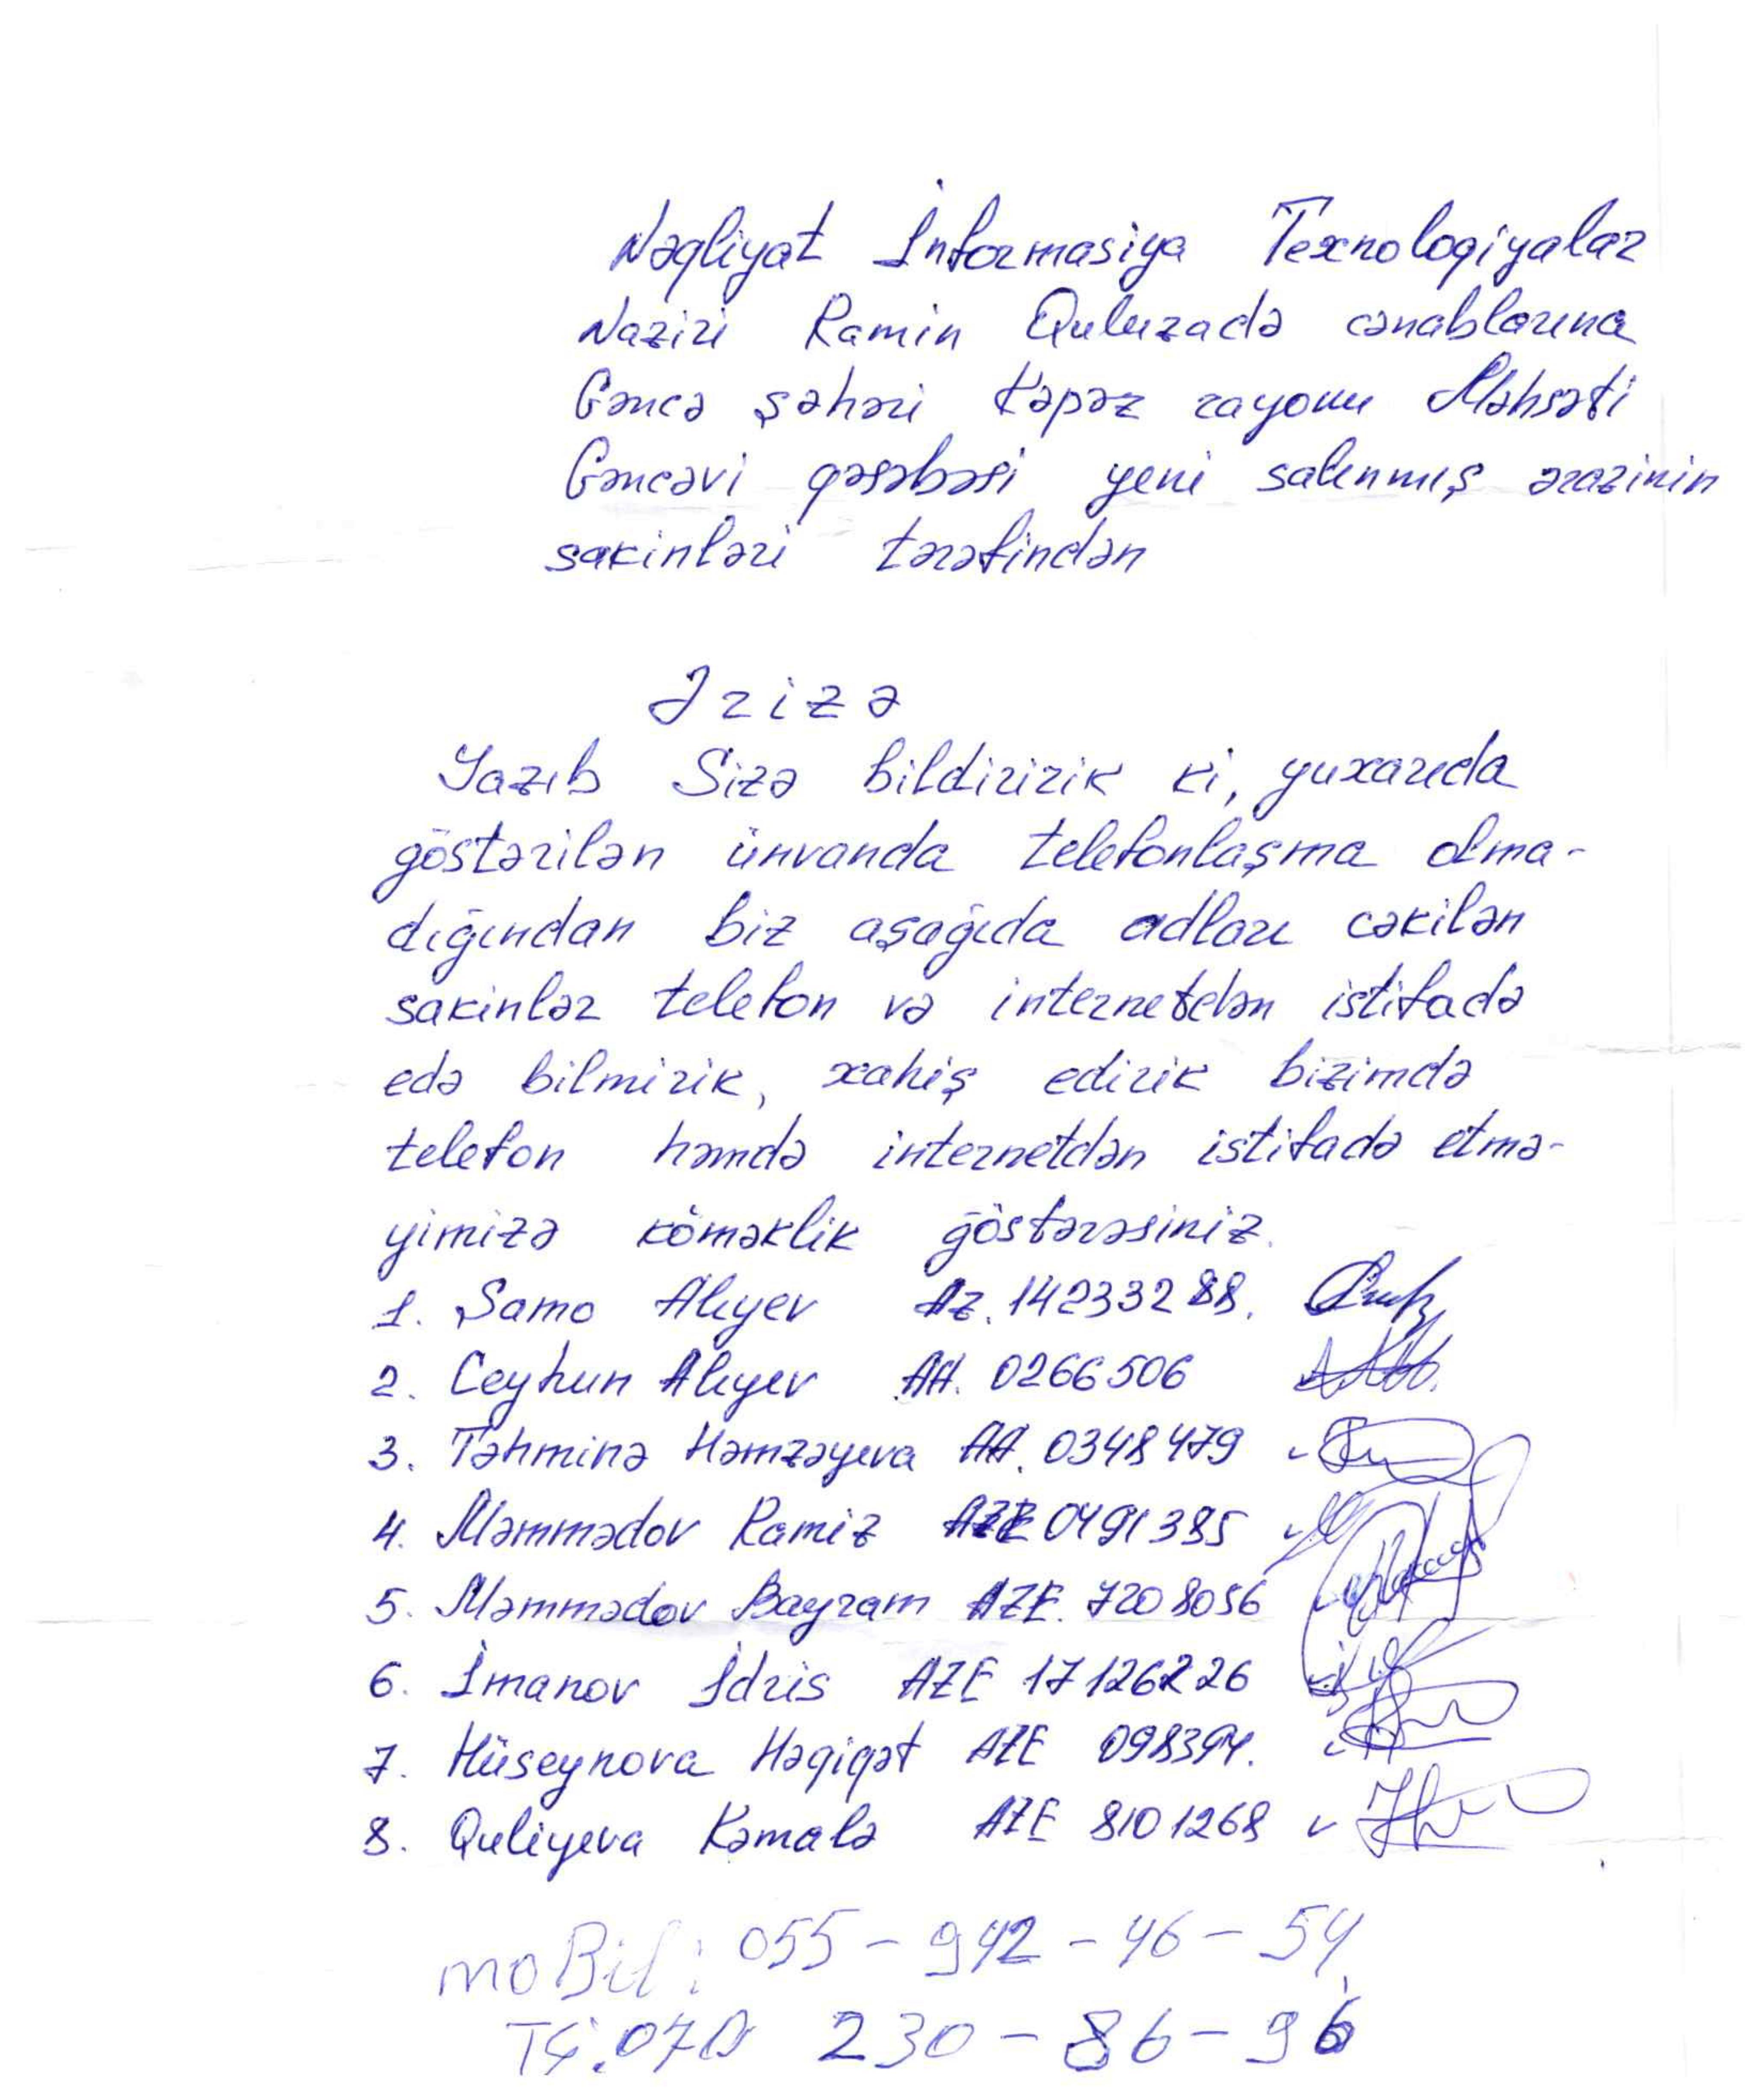 Nəqliyat İnformasiya Texnologiyalar
Naziri Ramin Quluzadə cənablarına
Gəncə şəhəri Kəpəz rayonu Məhsəti
Gəncəvi qəsəbəsi yeni salınmış ərazinin
sakinləri tərəfindən
Ərizə
Yazıb Sizə bildiririk ki, yuxarıda
göstərilən ünvanda telefonlaşma olma-
dığından biz aşağıda adları cəkilən
sakinlər telefon və internetdən istifadə
edə bilmirik, xahiş edirik bizimdə
telefon həmdə internetdən istifadə etmə-
yimizə köməklik göstərəsiniz.
1. Samo Alıyev Az. 14233288.
2. Ceyhun Alıyev AA. 0266506
3. Təhminə Həmzəyeva AA. 0348479
4. Məmmədov Ramiz AZE 0491385
5. Məmmədov Bayram AZE. 7208056
6. İmanov İdris AZE 17126226
7. Hüseynova Həqiqət AZE 098394.
8. Quliyeva Kəmalə AZE 8101268
moBil: 055-942-46-54
070 230-86-96